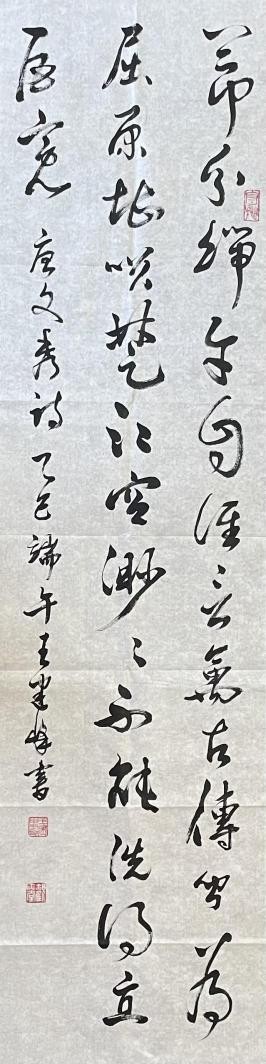 節分端午自誰言萬古傳聞為
屈原堪笑楚江空渺渺不能洗得直
臣冤 唐文秀詩 乙巳端午王書